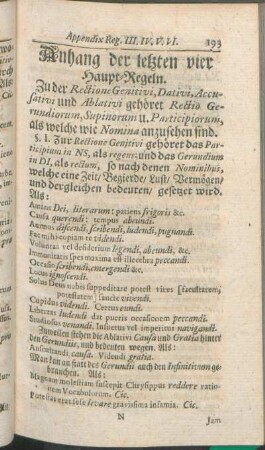 Appendix Reg. III. IV. V. VI. 193
Anhang der letzten vier
Haupt-Regeln.
Zu der Rectione Genitivi, Dativi, Accu-
sativi und Ablativi gehöret Rectio Ge-
rundiorum, Supinorum u. Participiorum,
als welche wie Nomina anzusehen sind.
§. 1. Zur Rectione Genitivi gehöret das Par-
ticipium in NS, als regens: und das Gerundium
in DI, als rectum, so nach denen Nominibus,
welche eine Zeit, Begierde, Lust, Vermögen,
und dergleichen bedeuten, gesetzet wird.
Als:
Amans Dei, literarum: patiens frigoris &c.
Causa querendi: tempus abeundi.
Animus discendi, scribendi, ludendi, pugnandi.
Fac mihi copiam te videndi.
Voluntas vel desiderium legendi, abeundi, &c.
Immunitatis spes maxima est illecebra peccandi.
Occasio scribendi, emergendi &c.
Locus ignoscendi.
Solus Deus nobis suppeditare potest vires [facultatem,
potestatem] sancte vivendi.
Cupidus videndi. Certus eundi.
Libertas ludendi dat pueris occasionem peccandi.
Studiosus venandi. Insuetus vel imperitus navigandi.
Zuweilen stehen die Ablativi Causa und Gratia hinter
den Gerundiis, und bedeuten wegen. Als:
Auscultandi causa. Videndi gratia.
Man kan an statt des Gerundii auch den Infinitivum ge-
brauchen. Als:
Magnam molestiam suscepit Chrysippus reddere ratio-
num Vocabulorum. Cic.
Potestas ejus levare gravissima infamia. Cic.
N
Jam